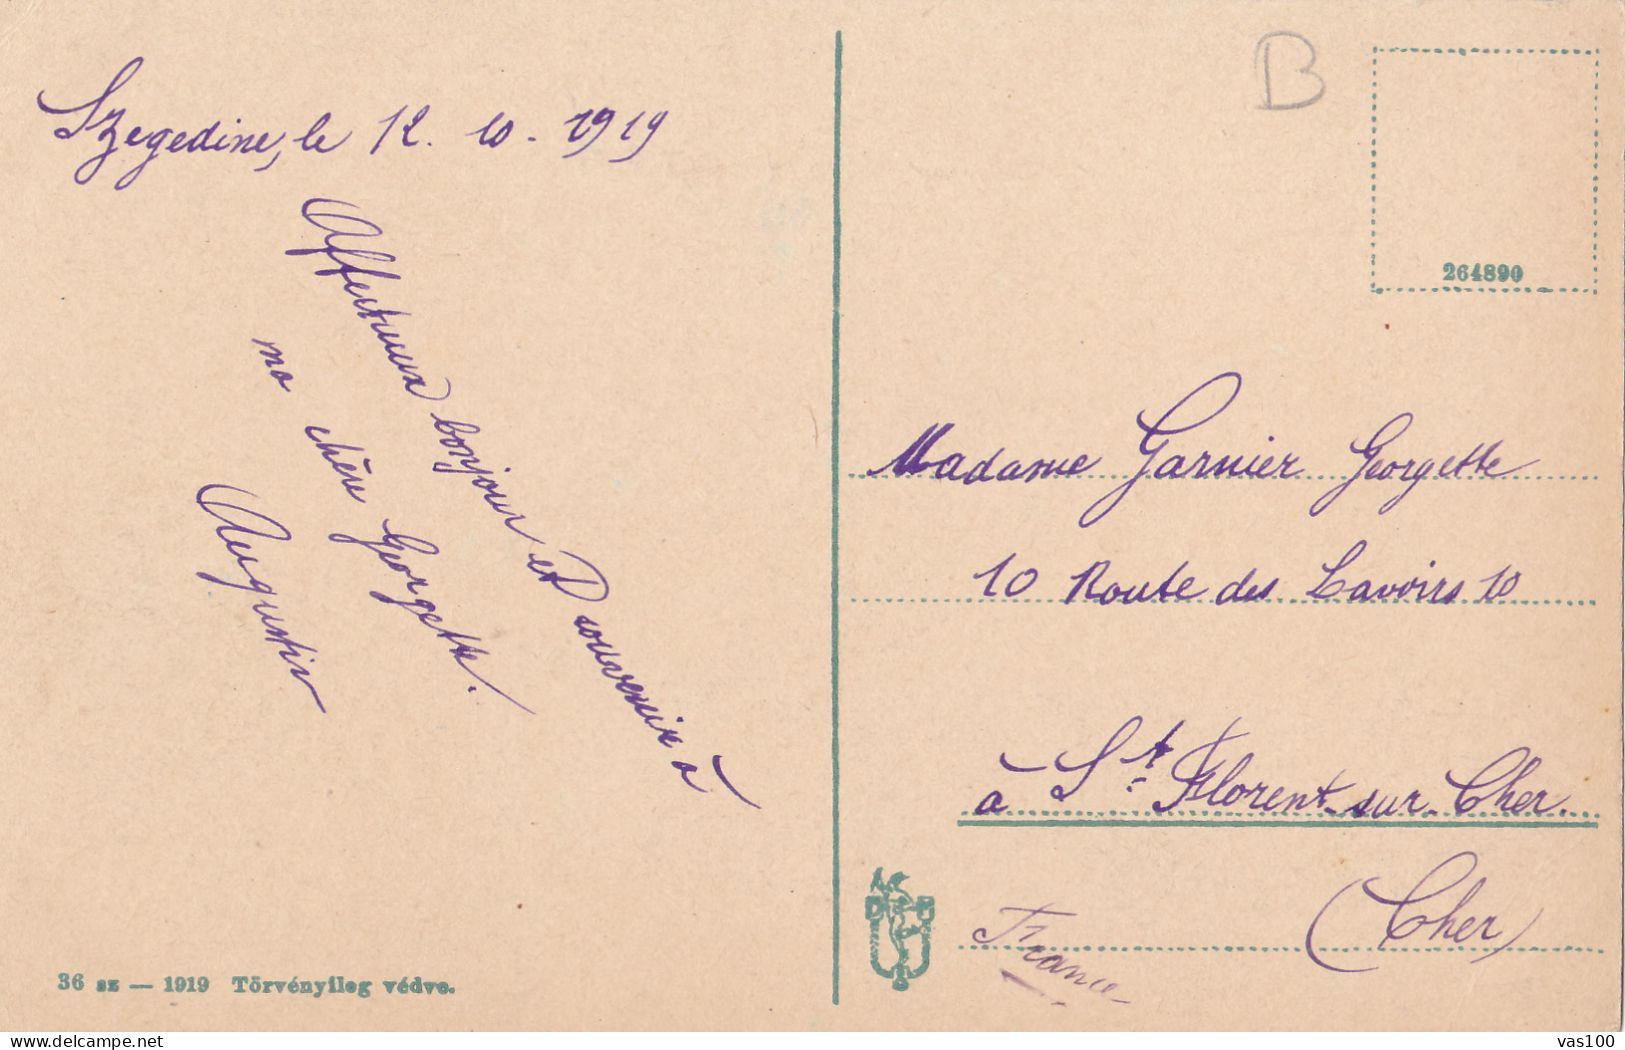 Szegedine, le 12. 10 - 1919
Affectueux bonjour et souvenir à
ma chère Georgette.
Augustin
36 sz — 1919 Törvényileg védve.
B
264890
Madame Garnier Georgette
10 Route des Lavoirs 10
à St. Florent-sur-Cher.
(Cher)
France
vas100